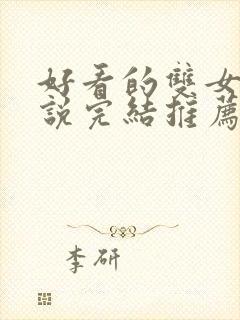 好看的雙女
說完結推薦
李研